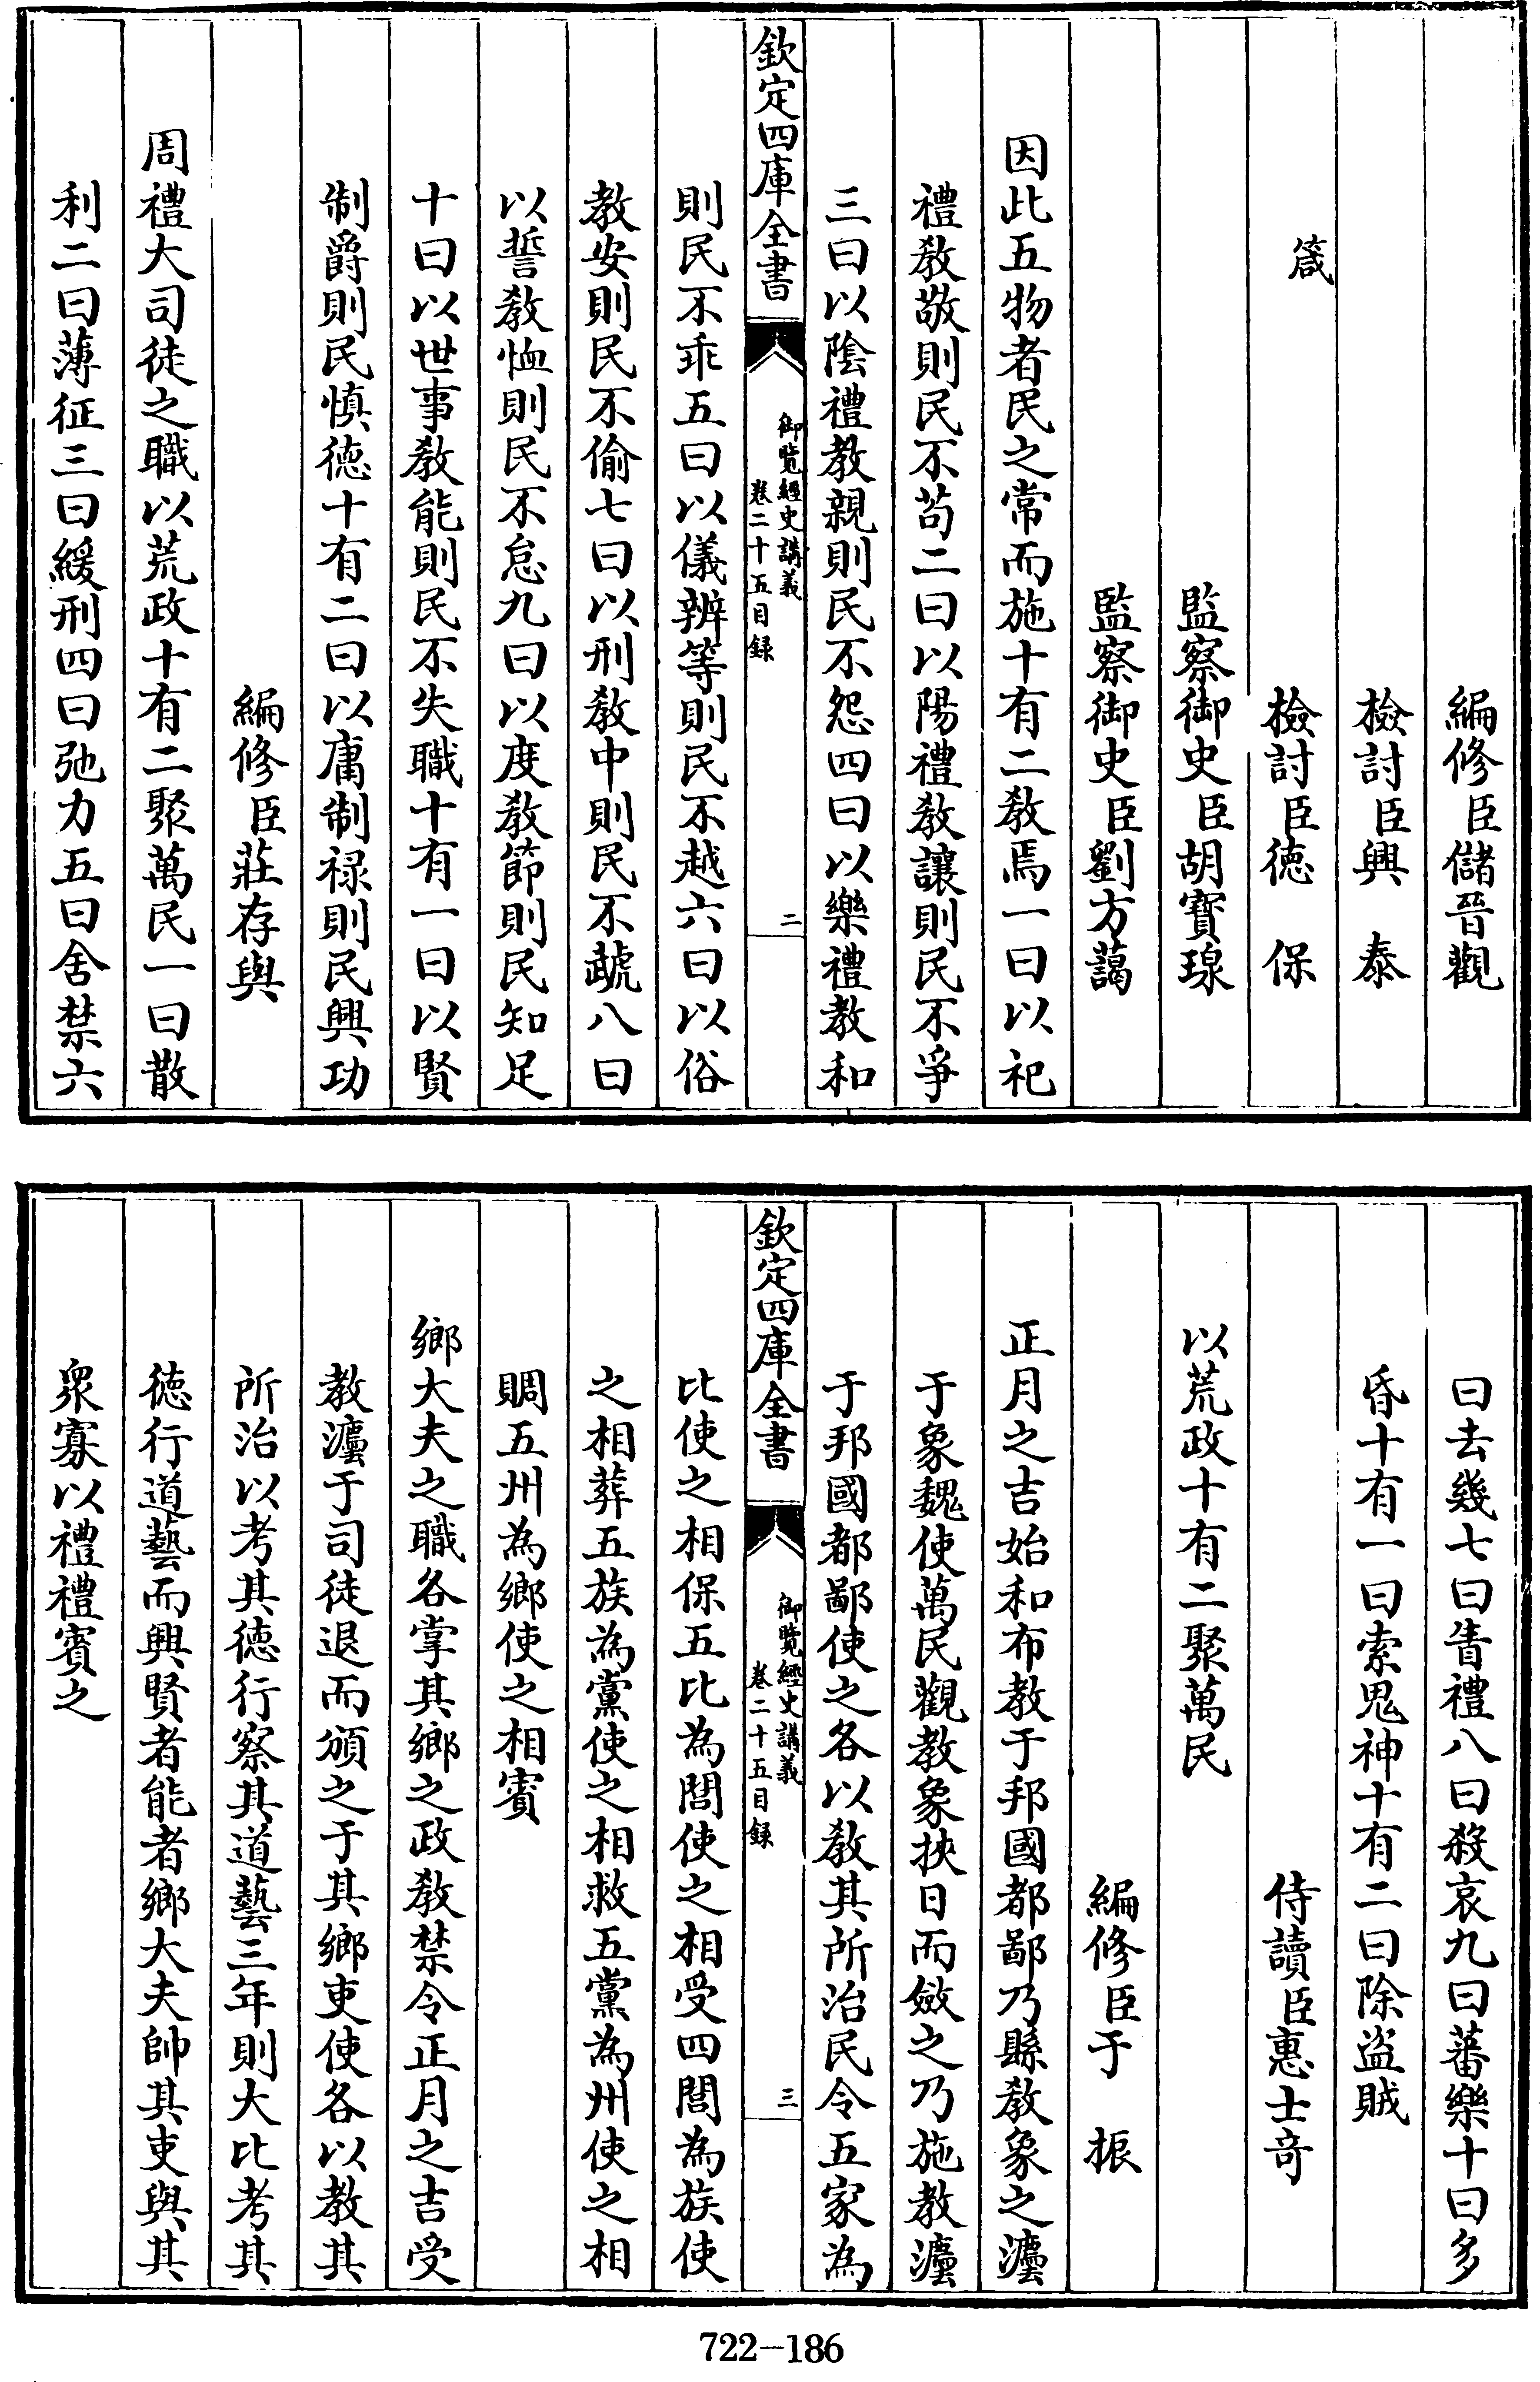 編修臣儲晉觀
檢討臣興　泰
檢討臣德　保
箴
監察御史臣胡寳瑔
監察御史臣劉方藹
因此五物者民之常而施十有二教焉一曰以祀
禮教敬則民不苟二曰以陽禮教讓則民不爭
三曰以陰禮教親則民不怨四曰以樂禮教和
欽定四庫全書
御覽經史講義
卷二十五目録
二
則民不乖五曰以儀辨等則民不越六曰以俗
教安則民不偷七曰以刑教中則民不虣八曰
以誓教恤則民不怠九曰以度教節則民知足
十曰以世事教能則民不失職十有一曰以賢
制爵則民慎徳十有二曰以庸制禄則民興功
編修臣莊存與
周禮大司徒之職以荒政十有二聚萬民一曰散
利二曰薄征三曰緩刑四曰弛力五曰舍禁六
曰去幾七曰眚禮八曰殺哀九曰蕃樂十曰多
昏十有一曰索鬼神十有二曰除盜賊
侍讀臣惠士竒
以荒政十有二聚萬民
編修臣于　振
正月之吉始和布教于邦國都鄙乃縣教象之灋
于象魏使萬民觀教象挾日而斂之乃施教灋
于邦國都鄙使之各以教其所治民令五家為
欽定四庫全書
御覽經史講義
卷二十五目録
三
比使之相保五比為閭使之相受四閭為族使
之相葬五族為黨使之相救五黨為州使之相
賙五州為鄉使之相賓
鄉大夫之職各掌其鄉之政教禁令正月之吉受
教灋于司徒退而頒之于其鄉吏使各以教其
所治以考其徳行察其道藝三年則大比考其
徳行道藝而興賢者能者鄉大夫帥其吏與其
衆寡以禮禮賓之
722-186